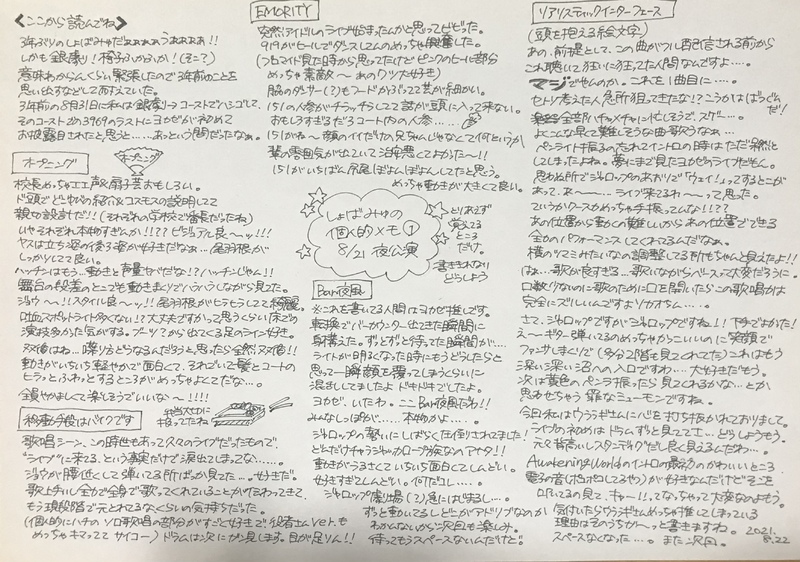 ＜ここから読んでね＞
3年ぶりのしょばみゅだぁぁぁぁうぁぁぁぁ!!
しかも銀劇!椅子ふかふか!(そこ?)
意味わからんくらい緊張したので3年前のことを
思い出すなどしてあえていた。
3年前の8月31日に私は銀劇→コーストでハシゴして、
そのコースト あの3969のラストにヨカゼがはじめて
お披露目されたと思うと……あっという間だったなぁ。
オープニング
オープニング
校長めっちゃエエ声&扇子芸おもしろい。
ド頭でどしゃバンの紹介&コスモスの説明してて
親切設計だ!!(それぞれの学校で番長だったね)
いやそれぞれ本物すぎんか!!?ビジュアル良〜ッ!!!
ヤスは立ち姿の後ろ姿が好きだなぁ…尾羽根が
しっかりしてて良い。
ハッチンはもう…動きと声量やべだな!?ハッチンじゃん!!
舞台の段差のとこでも動きまくりでハラハラしながら見てた。
ジョウ〜!!スタイル良〜ッ!!尾羽根がヒラヒラしてて綺麗。
吐血スポットライト多くない!?大丈夫ですかって思うくらい床での
演技多かった気がする。ブーツ?から出てくる足のライン好き。
双循はね…喋り方どうなるんだろうと思ったら全然双循!!
動きがいちいち軽やかで面白くて、それでいて髪とコートの
ヒラっとふわっとするところがめっちゃよくてだな…。
全員やましくて楽しそうでいいな〜!!!!
移動手段はバイクです
弁当大口に
持ってたね
歌唱シーン、この時世もあって久々のライブだったもので、
“ライブ”に来てる…という事実だけで涙出てしまってな……
ジョウが腰低くして弾いてる所ばっか見てた…。好きだ。
歌上手いし全力で全身で歌ってくれていることがもう伝わってきて、
もう現段階で元とれてるなくらいの気持ちだった。
(個人的にハチのソロ歌唱の部分がすごく好きで、役者さんver.も
めっちゃキマッててサイコー)ドラムは次にガン見します。目が足りん!!
EMORITY
突然アイドルのライブ始まったんかと思ってビビった。
919がヒールでダンスしてんのめっちゃ興奮した。
(ブロマイド見た時から思ってたけどピンクのヒール部分
めっちゃ素敵〜 あのクツ大好き)
脇のダンサー(?)もフードかぶってて芸が細かい。
151の人参がチラッチラしてて話が頭に入って来ない。
おもしろすぎるだろコート内の人参……
151がね〜 顔のイイだけの兄ちゃんじゃなくて何というか
輩の雰囲気が出ていて治安悪くてよかった〜!!
151がいちばん尻尾ぽんぽんしてたと思う。
めっちゃ動きが大きくて良い。
しょばみゅの
個人的メモ①
8/21 夜公演
とりあえず
覚えてる
ところ
だけ。
書ききれない
どうしよう
Bar夜風
※これを書いてる人間はヨカゼ推しです。
転換でバーカウンター出てきた瞬間に
身構えた。ずどずどと待ってた瞬間が…
ライトが明るくなった時にもうどうしたらと
思って一瞬顔を覆ってしまうくらいに
混乱してましたよ ドキドキでしたよ。
ヨカゼ…いたわ。ここBar夜風だわ!!
みんなしっぽが……本物かよ……。
ジャロップの勢いにしばらく圧倒されてました!
どんだけチャラジャカロープ族なのアナタ!!
動きがうるさくていちいち面白くてしんどい。
好きすぎてしんどい。何だコレ……。
ジャロップ劇場(?)急にはじまるし…
ずっと動いてるしどこがアドリブなのか
わかんないから次回も楽しみ。
待ってもうスペースないんだけど。
リアリスティックインターフェース
(頭を抱える絵文字)
あの、前提として、この曲がフル配信される前から
これ聴いて狂いに狂ってた人間なんですよ…。
マジでやんのか。これを1曲目に……。
セトリ考えた人急所狙ってきたな!?こうかはばつぐん
だ!
全部ハチャメチャに忙しそうで、スゲー…。
よくこんな早くて難しそうな曲歌うなぁ…
ペンライト振るの忘れてイントロの時はただ呆然と
してしまったよね。夢にまで見たヨカゼのライブだもん。
思わぬ所でジャロップのあおりで「ウェイ!」ってするとこが
あって、あ〜……ライブ来てるわ〜って思った。
ていうかクースカめっちゃ手振ってんな!!??
あの位置から動くの難しいからあの位置でできる
全力のパフォーマンスしてくれてるんだなぁ。
横のツマミみたいなの調整してる所もちゃんと見えたよ!!
はぁ…歌が良すぎる…歌いながらベースって大変だろうに。
口数少ないのに歌のために口を開いたらこの歌唱力は
完全にズルいんですよリカオさん……。
さて、ジャロップですがジャロップですね!!下手でよかた!
え〜ギター弾いてるのめっちゃかっこいいのに笑顔で
ファンサしまくりで(多分2階も見てくれてた)これはもう
深い深い沼への入口ですわ…大好きだもう。
次は黄色のペンラ振ったら見てくれるかな…とか
思わせちゃう 罪なミューモンですね。
今日私はウララギさんに心を打ち抜かれておりまして。
ライブの初めは ドラムずっと見てて……どうしよう。
元々背高いしスタンディングだし良く見えるんだわ…。
Awakening Worldのイントロの最初のかわいいところ
電子の音(ピコポコしてるやつ)が好きなんだけどそこを
叩いてるの見て、キャー!!ってなっちゃって大変なのよもう。
気付いたらウララギさんめっちゃ推してしまっている
理由はそのうちが〜っと書きますね。2021.
スペースなくなった……。また次回。8.22